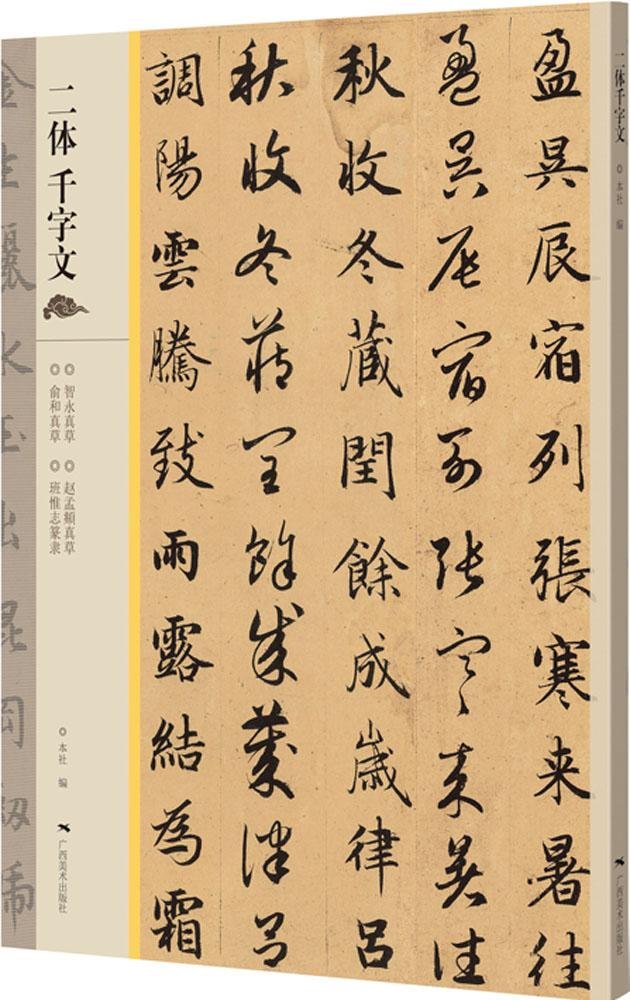 二体千字文 ◎ 本社 编 广西美术出版社
盈昃辰宿列張寒来暑往
盈昃辰宿列張寒来暑往
秋收冬藏閏餘成歲律呂
秋收冬藏閏餘成歲律呂
調陽雲騰致雨露結為霜
二体 千字文
◎ 智永真草 ◎ 赵孟頫真草
◎ 俞和真草 ◎ 班惟志篆隶
◎ 本社 编
广西美术出版社
金生麗水玉出崑岡